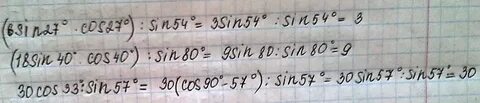 (6Sin27° · cos27°) : sin54° = 3Sin54° : sin54° = 3
(18sin 40° · cos40°) : sin80° = 9sin80 : sin80° = 9
30cos33° : sin57° = 30(cos90° - 57°) : sin57° = 30sin57° : sin57° = 30